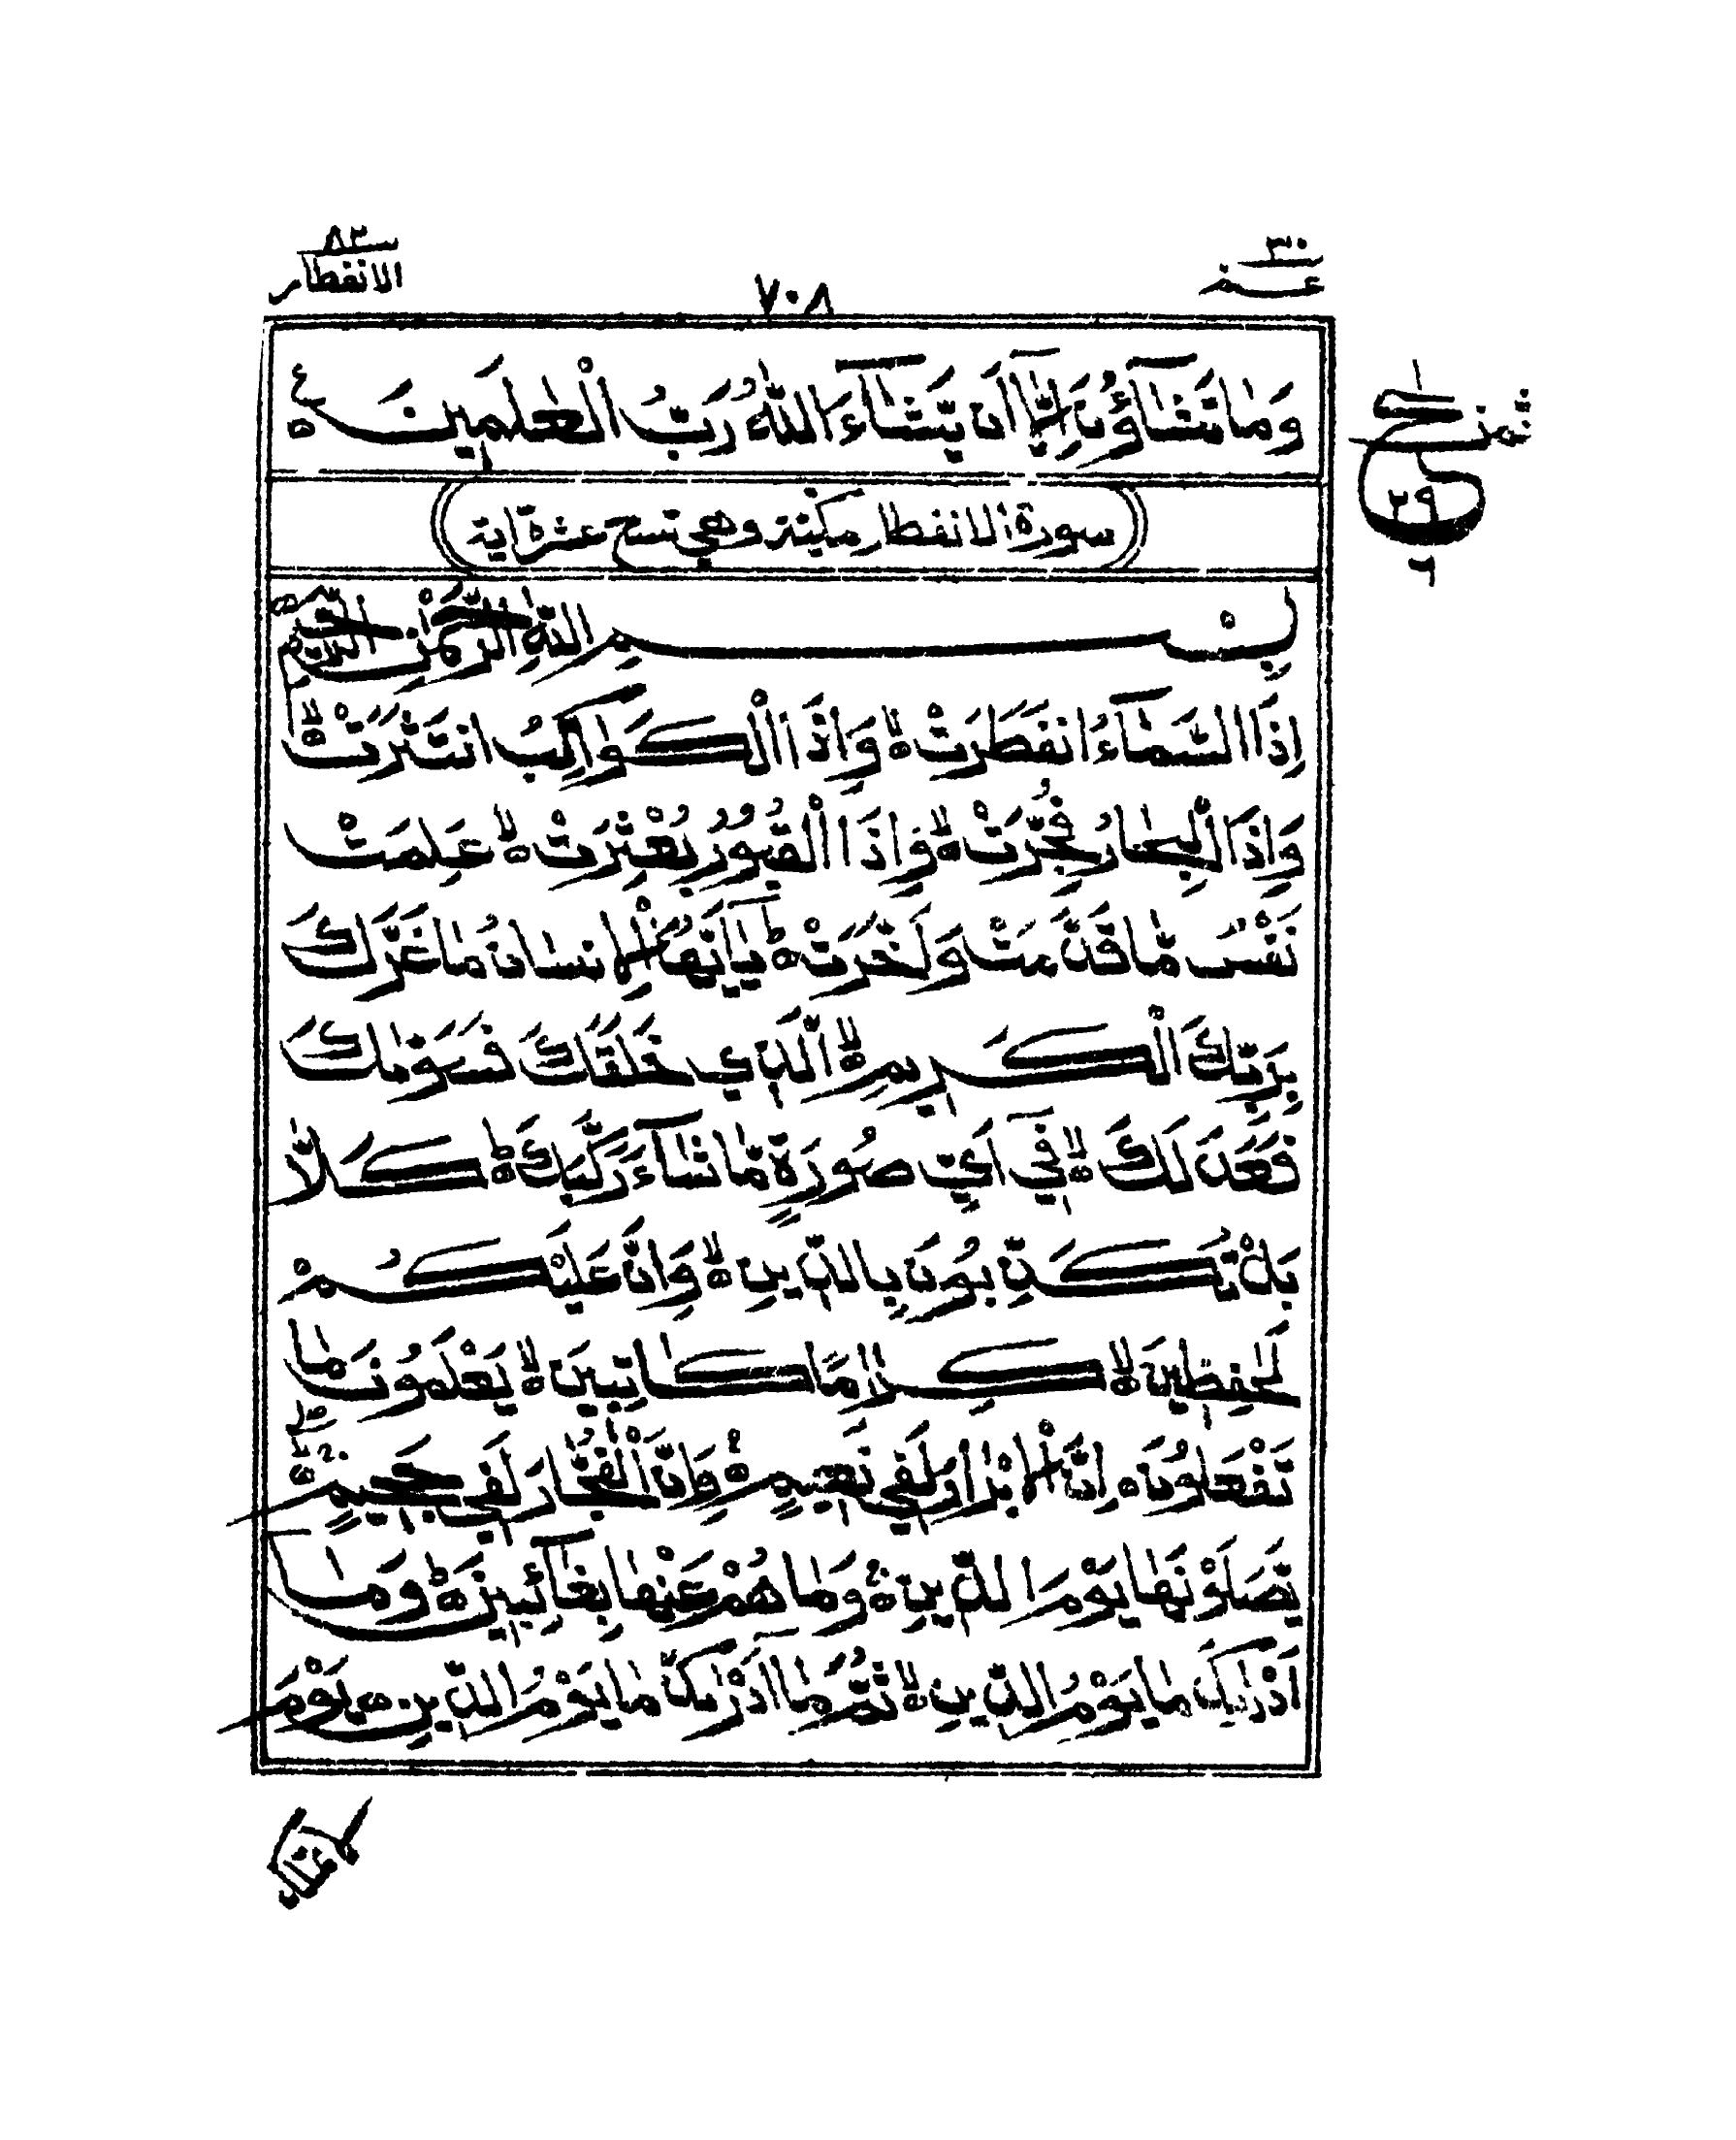 ٣٠
عم
٧٠٨
٨٢
الانفطار
وَمَا تَشَآؤُنَ اِلَّآ اَنْ يَّشَآءَ اللّٰهُ رَبُّ الْعٰلَمِيْنَ ع
ثمن
١
٢٩
٦
سورة الانفطار مكية وهي تسع عشرة اية
بِسْمِ اللّٰهِ الرَّحْمٰنِ الرَّحِيْمِ
اِذَا السَّمَآءُ انْفَطَرَتْ ۙ وَاِذَا الْكَوَاكِبُ انْتَثَرَتْ ۙ
وَاِذَا الْبِحَارُ فُجِّرَتْ ۙ وَاِذَا الْقُبُوْرُ بُعْثِرَتْ ۙ عَلِمَتْ
نَفْسٌ مَّا قَدَّمَتْ وَاَخَّرَتْ ؕ يٰٓاَيُّهَا الْاِنْسَانُ مَا غَرَّكَ
بِرَبِّكَ الْكَرِيْمِ ۙ الَّذِيْ خَلَقَكَ فَسَوّٰىكَ
فَعَدَلَكَ ۙ فِيْٓ اَيِّ صُوْرَةٍ مَّا شَآءَ رَكَّبَكَ ؕ كَلَّا
بَلْ تُكَذِّبُوْنَ بِالدِّيْنِ ۙ وَاِنَّ عَلَيْكُمْ
لَحٰفِظِيْنَ ۙ كِرَامًا كَاتِبِيْنَ ۙ يَعْلَمُوْنَ مَا
تَفْعَلُوْنَ ۝ اِنَّ الْاَبْرَارَ لَفِيْ نَعِيْمٍ ۚ وَاِنَّ الْفُجَّارَ لَفِيْ جَحِيْمٍ ۚ
يَّصْلَوْنَهَا يَوْمَ الدِّيْنِ ۝ وَمَا هُمْ عَنْهَا بِغَآئِبِيْنَ ؕ وَمَآ
اَدْرٰىكَ مَا يَوْمُ الدِّيْنِ ۙ ثُمَّ مَآ اَدْرٰىكَ مَا يَوْمُ الدِّيْنِ ؕ يَوْمَ